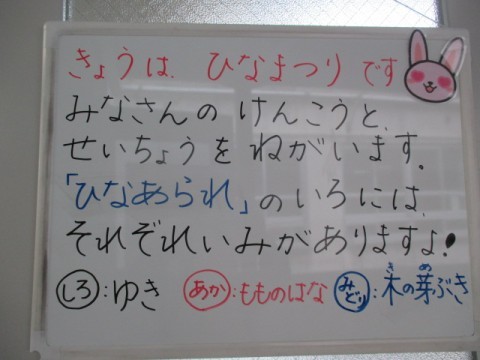 きょうは、ひなまつりです
みなさんの けんこうと、
せいちょうを ねがいます。
「ひなあられ」のいろには、
それぞれいみがありますよ!
しろ:ゆき あか:もものはな みどり:木の芽ぶき